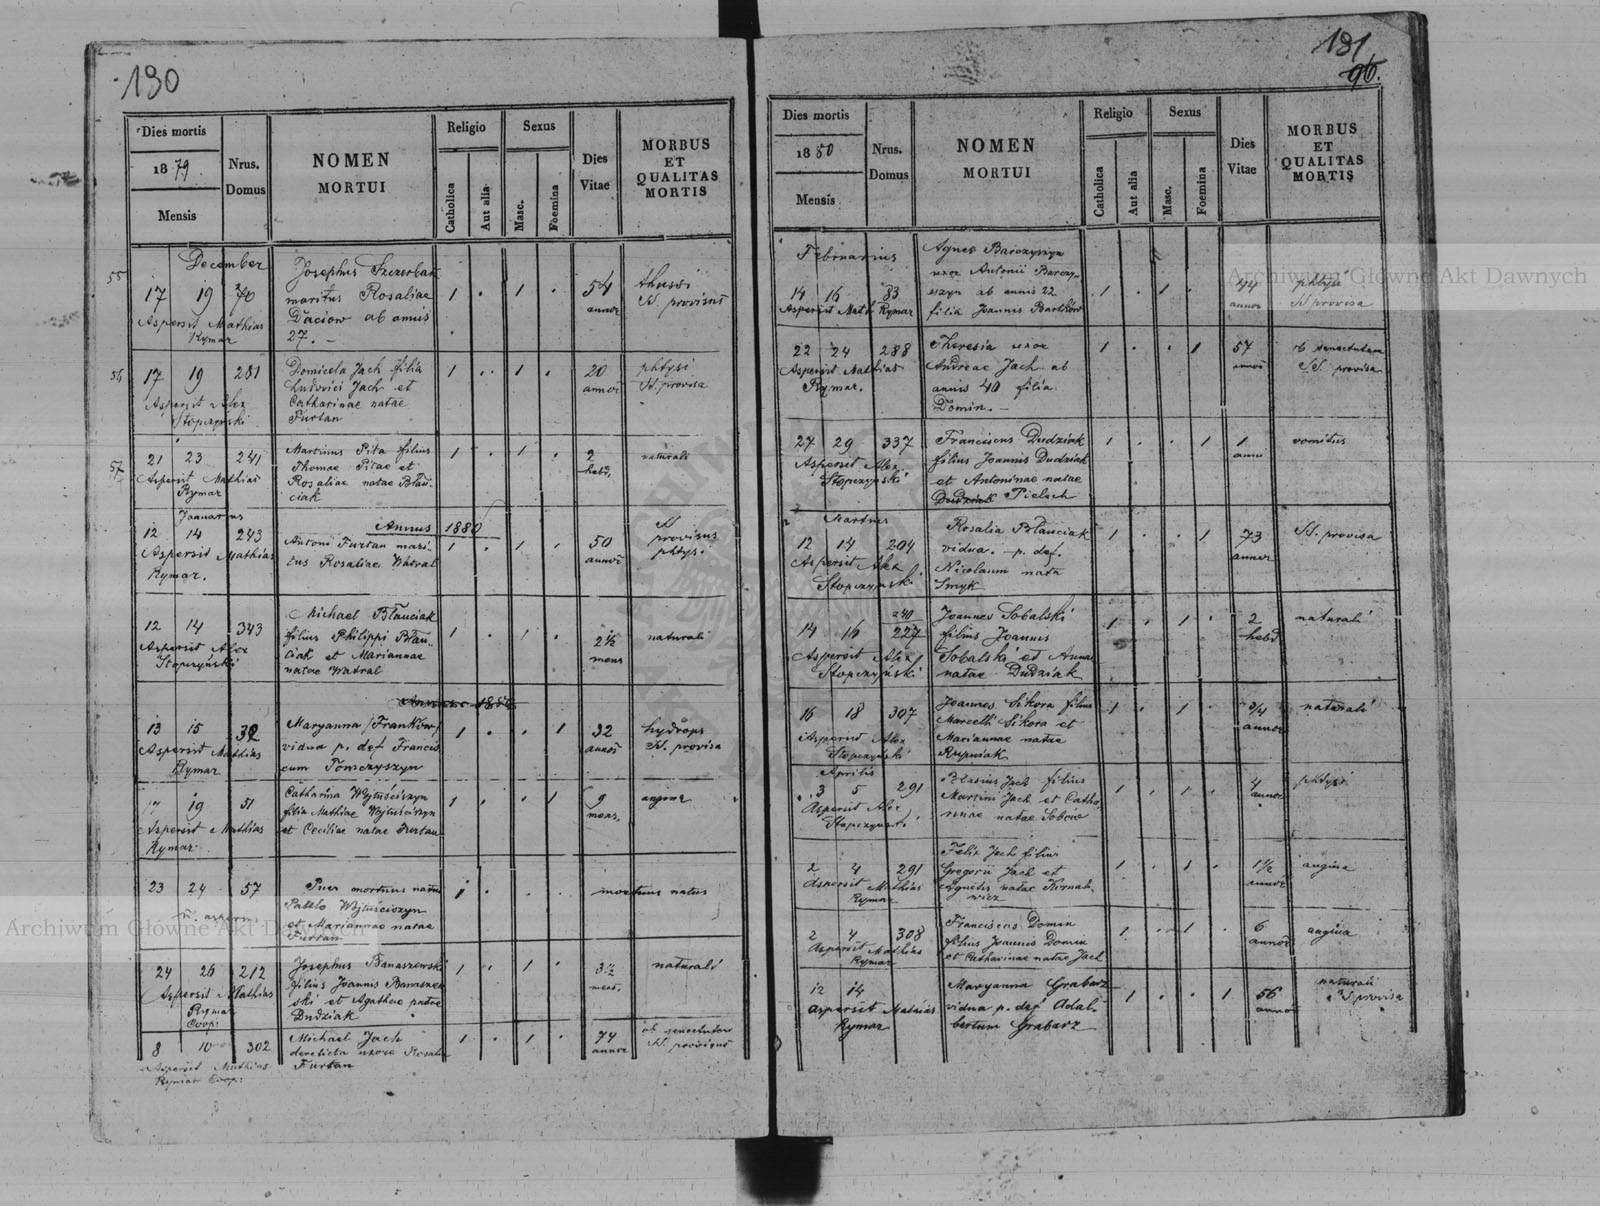 130
Dies mortis
1879.
Mensis
Nrus.
Domus
NOMEN
MORTUI
Religio
Catholica
Aut alia
Sexus
Masc.
Foemina
Dies
Vitae
MORBUS
ET
QUALITAS
MORTIS
December
55 17 19 70
Aspersit Mathias
Rymar
Josephus Szczerbak
maritus Rosaliae
Daciow ab annis
27. –
1 . 1 .
54
annor
tussi
SS. provisus
56 17 19 281
Aspersit Alex
Stopczyński
Domicela Jach filia
Ludovici Jach et
Catharinae natae
Furtan
1 . . 1
20
annor
phtysi
SS. provisa
57 21 23 241
Aspersit Mathias
Rymar
Martinus Pita filius
Thomae Pitae et
Rosaliae natae Błau-
ciak
1 . 1 .
2
hebd.
naturali
Januarius
Annus 1880
12 14 243
Aspersit Mathias
Rymar.
Antoni Furtan mari-
tus Rosaliae Watral
1 . 1 .
50
annor
SS
provisus
phtys.
12 14 343
Aspersit Alex
Stopczyński
Michael Błauciak
filius Philippi Błau-
ciak et Mariannae
natae Watral
1 . 1 .
2½
mens
naturali
13 15 32
Aspersit Mathias
Rymar
Maryanna (Franków)
vidua p. def Francis
cum Tomczyszyn
1 . . 1
32
annor
hydrops
SS. provisa
17 19 51
Aspersit Mathias
Rymar.
Catharina Wojtuściszyn
filia Mathiae Wojtuściszyn
et Ceciliae natae Furtan
1 . . 1
9
mens.
angina
23 24 57
n. aspersus
Puer mortuus natus
Pawlo Wojtuściszyn
et Mariannae natae
Furtan
1 . . .
mortuus natus
24 26 212
Aspersit Mathias
Rymar
Coop:
Josephus Banaszewski
filius Joannis Banaszew
ski et Agathae natae
Dudziak
1 . 1 .
3½
mens.
naturali
8 10 302
Aspersit Mathias
Rymar Coop:
Michael Jach
derelicta uxore Rosalia
Furtan
1 . 1 .
74
annor
ob senectutem
SS. provisus
131
96.
Dies mortis
1880
Mensis
Nrus.
Domus
NOMEN
MORTUI
Religio
Catholica
Aut alia
Sexus
Masc.
Foemina
Dies
Vitae
MORBUS
ET
QUALITAS
MORTIS
Februarius
14 16 83
Aspersit Math Rymar
Agnes Barczyszyn
uxor Antonii Barczy-
szyn ab annis 22
filia Joannis Bartków
1 . 1 .
44
annor
phtysi
SS provisa
22 24 288
Aspersit Mathias
Rymar.
Theresia uxor
Andreae Jach ab
annis 40 filia
Domin. –
1 . . 1
57
annor
ob senectutem
SS. provisa
27 29 337
Aspersit Alex.
Stopczyński
Franciscus Dudziak
filius Joannis Dudziak
et Antoninae natae
Dudziak Pielech
1 . . 1
1
anno
vomitus
Martius
12 14 204
Aspersit Alex
Stopczyński
Rosalia Błauciak
vidua. – p. def.
Nicolaum nata
Smyk
1 . . 1
73
annor
SS. provisa
240
14 16 227
Aspersit Alex
Stopczyński
Joannes Sobalski
filius Joannis
Sobalski et Annae
natae Dudziak
1 . 1 .
2
hebd
naturali
16 18 307
Aspersit Alex
Stopczyński
Joannes Sikora filius
Marcelli Sikora et
Mariannae natae
Rupniak
1 . 1 .
¾
annor
naturali
Aprilis
3 5 291
Aspersit Alex
Stopczyński
Blasius Jach filius
Martini Jach et Catha
rinae natae Sobców
1 . 1 .
4
annor
phtysi
2 4 291
Aspersit Mathias
Rymar
Felix Jach filius
Gregorii Jach et
Agnetis natae
1 . 1 .
1½
annor
angina
2 4 308
Aspersit Mathias
Rymar
Franciscus Domin
filius Joannis Domin
et Catharinae natae Jach
1 . 1 .
6
annor
angina
12 14
Aspersit Mathias
Rymar
Maryanna Grabarz
vidua p. def Adal-
bertum Grabarz
1 . . 1
56
annor
naturali
SS provisa
Archiwum Główne Akt Dawnych
Archiwum Główne Akt Dawnych